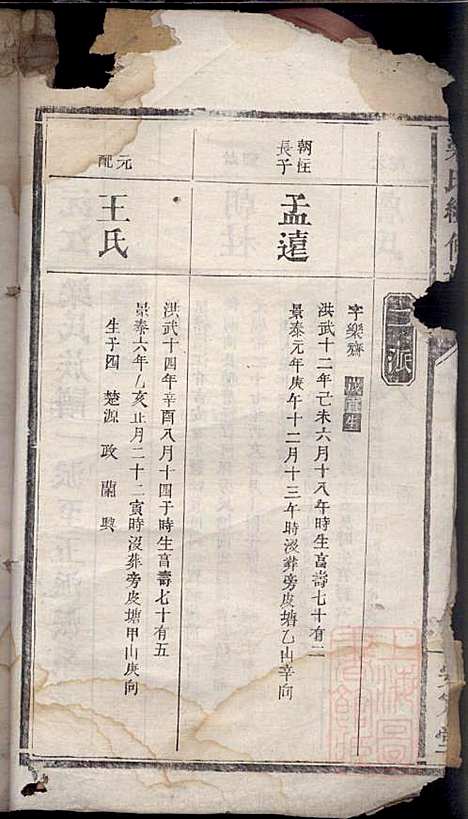 氏
派
朝柱
長子
孟遠
字樂齋
洪武十二年己未六月十八午時生高壽七十有二
景泰元年庚午十二月十三午時沒葬旁皮塘乙山辛向
元
配
王氏
洪武十四年辛酉八月十四子時生高壽七十有五
景泰六年乙亥正月二十二寅時沒葬旁皮塘甲山庚向
生子四 楚源 政 蘭 興